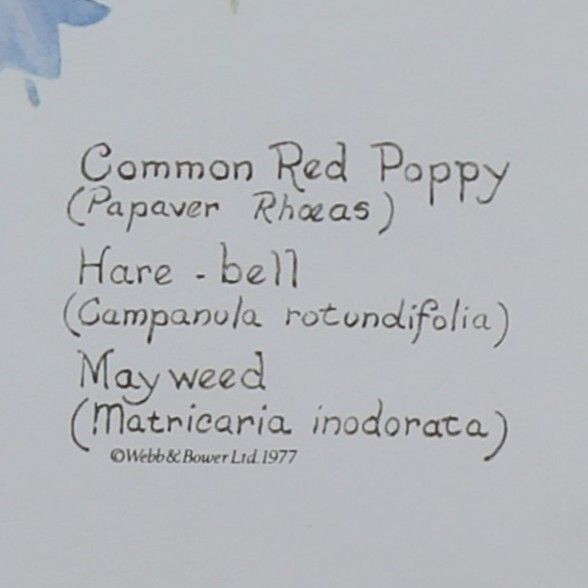 Common Red Poppy
(Papaver Rhœas)
Hare - bell
(Campanula rotundifolia)
May weed
(Matricaria inodorata)
©Webb & Bower Ltd. 1977